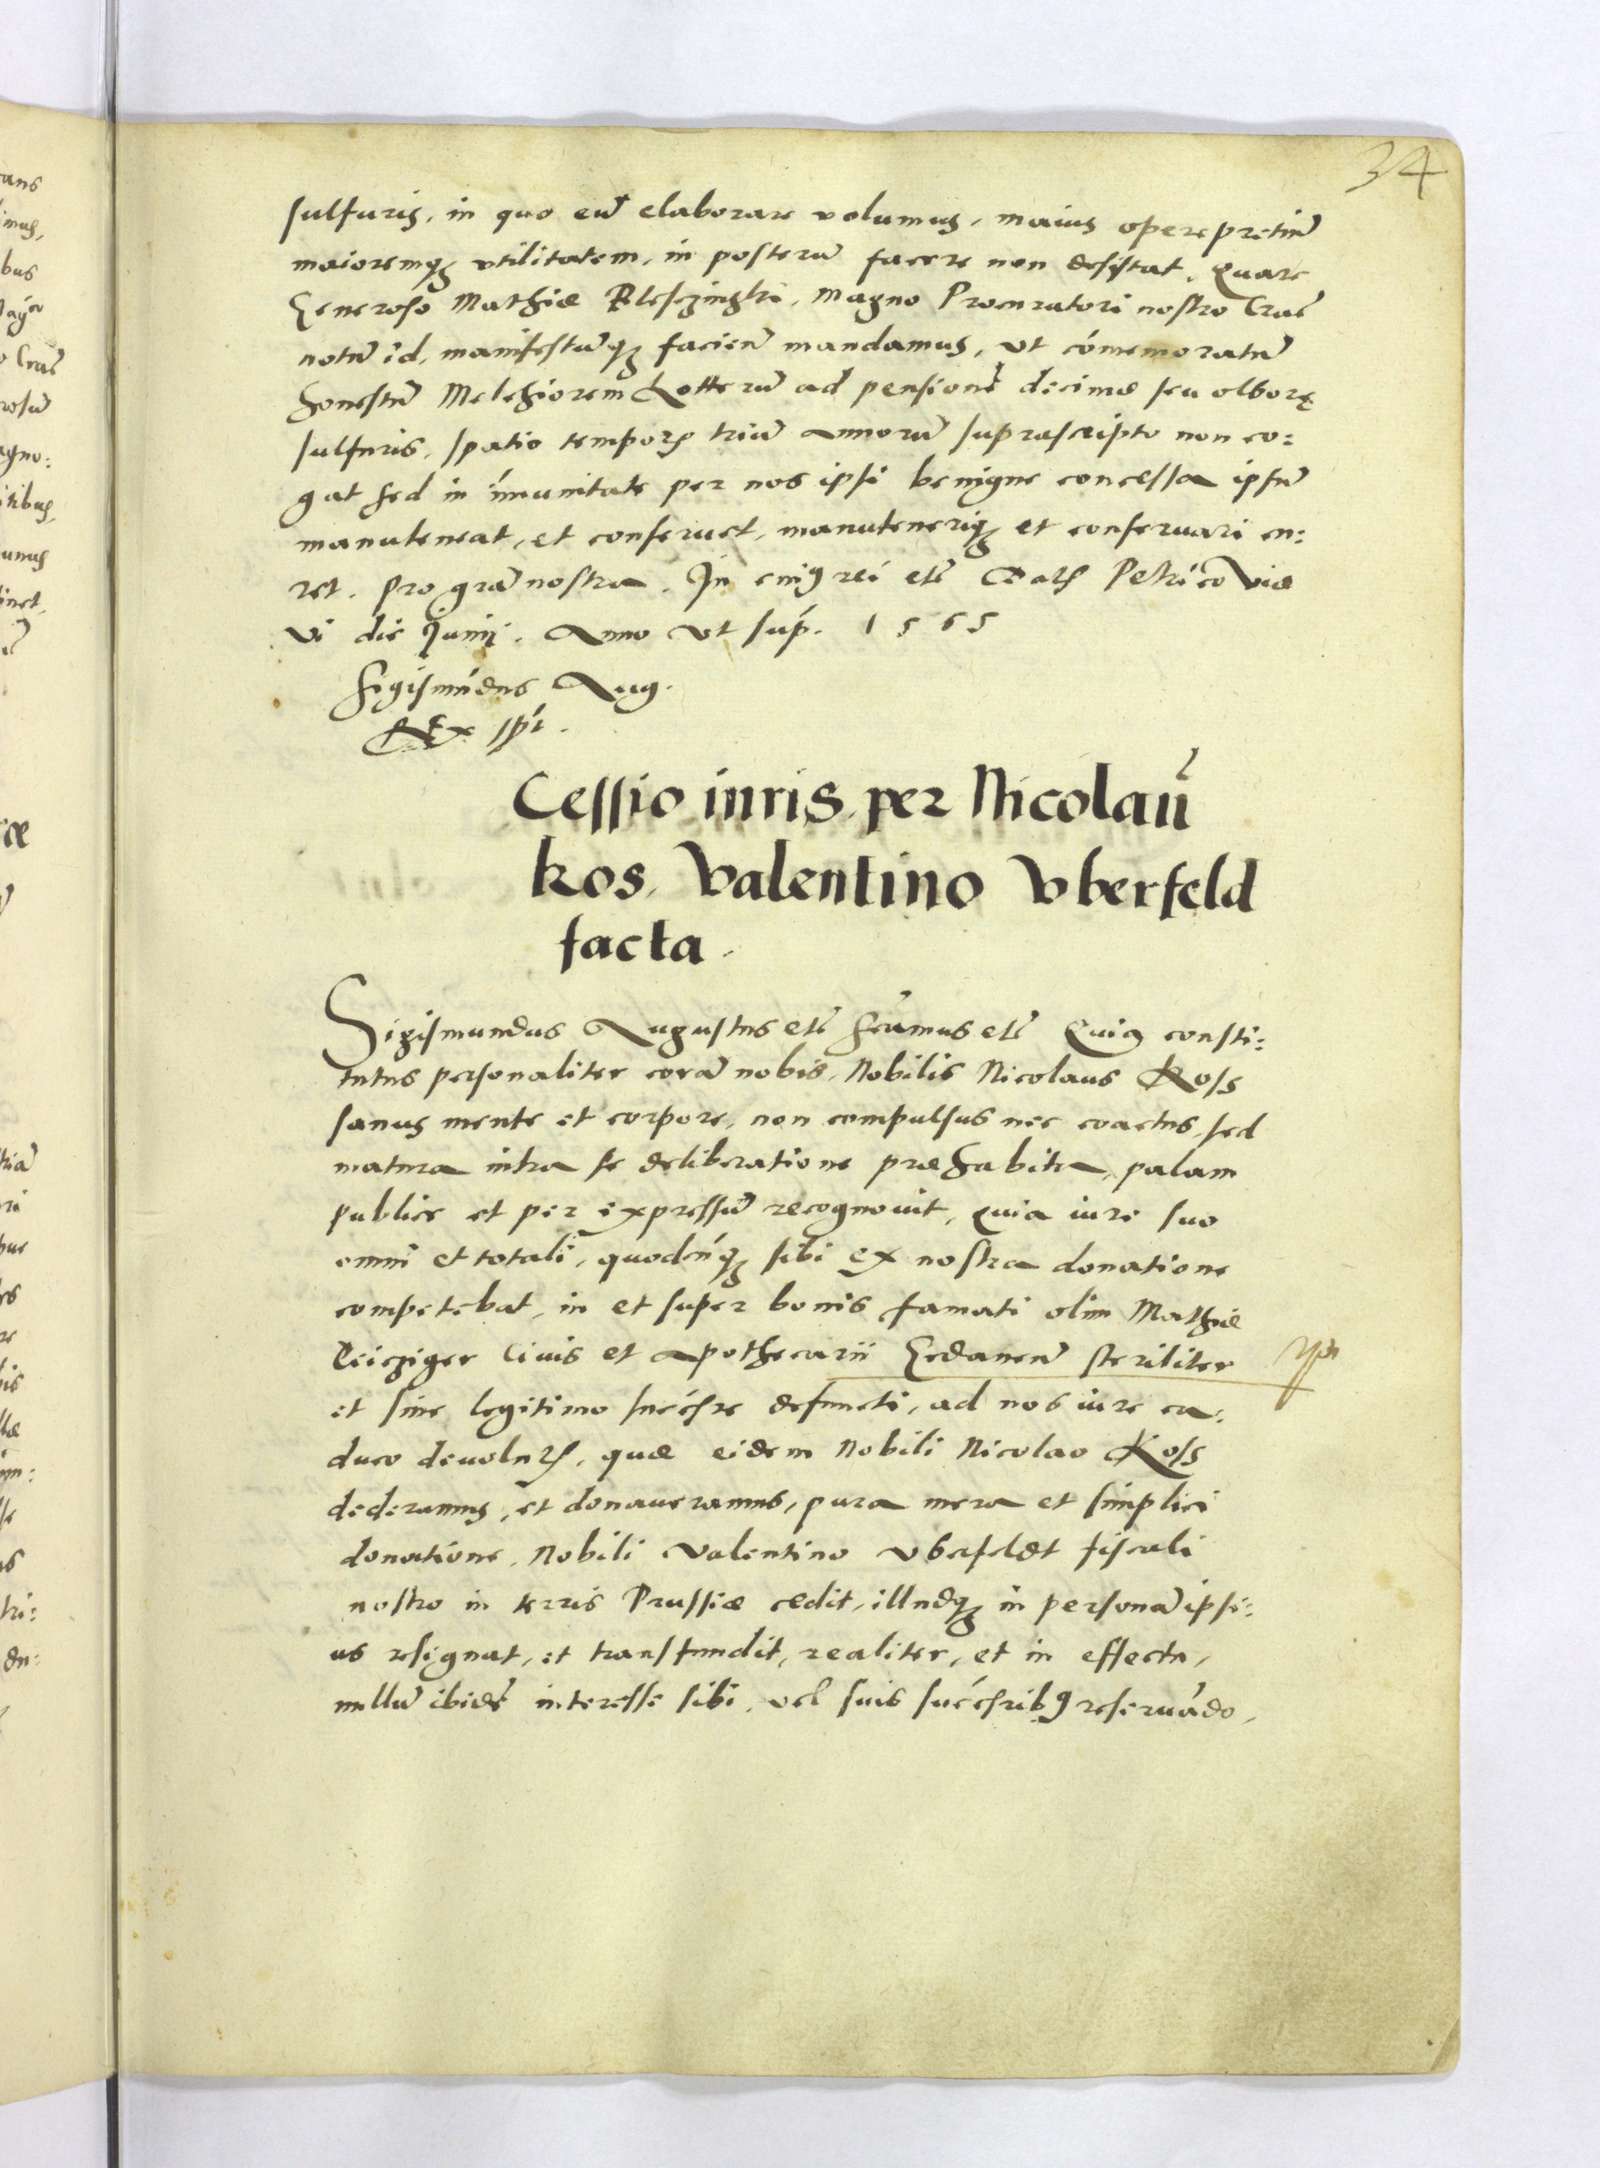 34
sulfuris, in quo eũ elaborare volumus, maius operepretiũ
maioremq₃ vtilitatem, in posterũ facere non desistat, Quare
Generoso Mathiæ Magno Procuratori nostro Crac̃
notũ id, manifestũq₃ facien̄ mandamus, vt com̃emoratũ
honestũ Melchiorem Lotterũ ad pensionẽ decimæ seu olborę
sulfuris, spatio tempor₃ triũ annorũ suprascripto non co:
gat sed in im̃unitate per nos ipsi benigne concessa ipsũ
manuteneat, et conseruet, manuteneriq₃ et conseruari cu:
ret. pro gra᷈ nostra. In cuiꝰ rei etc̃ Dat₃ Petricoviæ
vi die Junij. Anno vt sup᷈. 1565
Sigismũdus Aug.
Rex sp̃t.
Cessio iuris per Nicolaũ
kos, Valentino Vberfeld
facta.
Sigismundus Augustus etc̃ scim᷈us etc̃ Quia consti:
tutus personaliter corã nobis, Nobilis Nicolaus Koss
sanus mente et corpore, non compulsus nec coactus, sed
matura intra se deliberatione præhabita, palam
publice et per expressũ recognouit, quia iure suo
omni et totali, quodcũq₃ sibi ex nostra donatione
competebat, in et super bonis famati olim Mathiæ
Ciuis et Apothecarii Gedanen̄ steriliter
et sine legitimo succ̃sre defuncti, ad nos iure ca:
duco deuolut₃, quæ eidem Nobili Nicolao Koss
dederamus, et donaueramus, pura mera et simplici
donatione, Nobili Valentino Vberfeldt fiscali
nostro in terris Prussiæ cedit, illudq₃ in personã ipsi:
us resignat, et transfundit, realiter, et in effectu,
nullũ ibidẽ interesse sibi, vel suis succ̃sribꝰ reseruãdo,